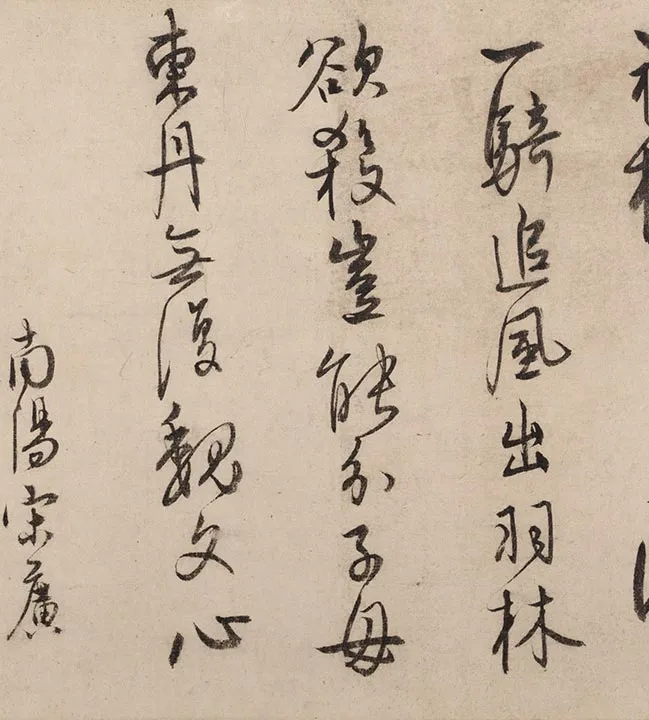 一騎追風出羽林
欲殺豈能分子母
東丹無復魏文心
南陽宋廣